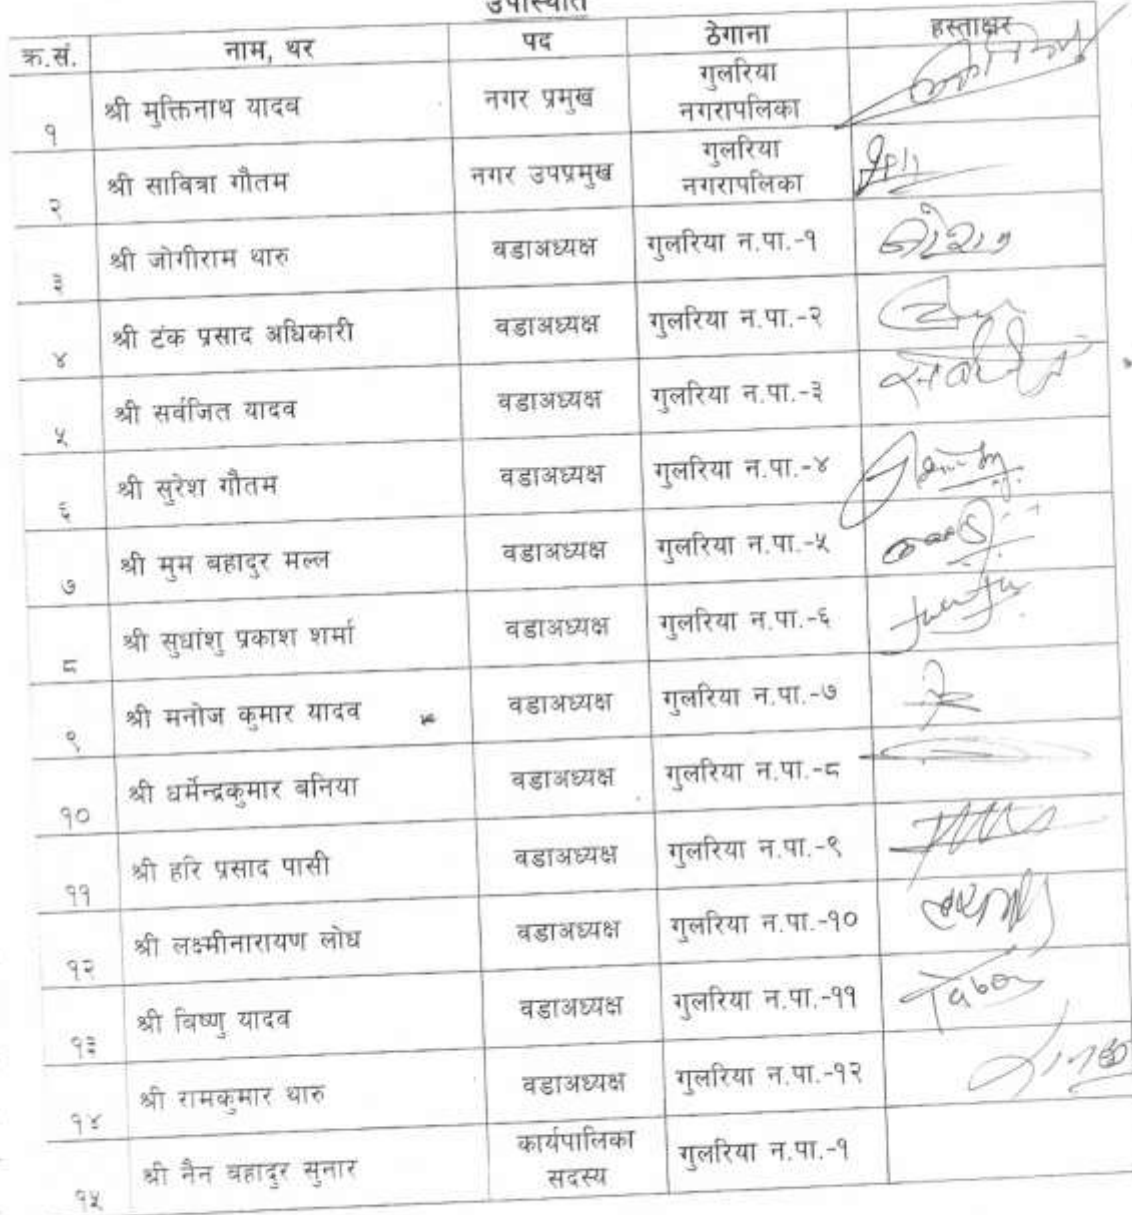 उपस्थिति
क्र.सं. नाम, थर पद ठेगाना हस्ताक्षर
१ श्री मुक्तिनाथ यादब नगर प्रमुख गुलरिया नगरापलिका
२ श्री साबित्रा गौतम नगर उपप्रमुख गुलरिया नगरापलिका
३ श्री जोगीराम थारु वडाअध्यक्ष गुलरिया न.पा.-१
४ श्री टंक प्रसाद अधिकारी वडाअध्यक्ष गुलरिया न.पा.-२
५ श्री सर्वजित यादव वडाअध्यक्ष गुलरिया न.पा.-३
६ श्री सुरेश गौतम वडाअध्यक्ष गुलरिया न.पा.-४
७ श्री मुम बहादुर मल्ल वडाअध्यक्ष गुलरिया न.पा.-५
८ श्री सुधांशु प्रकाश शर्मा वडाअध्यक्ष गुलरिया न.पा.-६
९ श्री मनोज कुमार यादव वडाअध्यक्ष गुलरिया न.पा.-७
१० श्री धर्मेन्द्रकुमार बनिया वडाअध्यक्ष गुलरिया न.पा.-८
११ श्री हरि प्रसाद पासी वडाअध्यक्ष गुलरिया न.पा.-९
१२ श्री लक्ष्मीनारायण लोध वडाअध्यक्ष गुलरिया न.पा.-१०
१३ श्री बिष्णु यादव वडाअध्यक्ष गुलरिया न.पा.-११
१४ श्री रामकुमार थारु वडाअध्यक्ष गुलरिया न.पा.-१२
१५ श्री नैन बहादुर सुनार कार्यपालिका सदस्य गुलरिया न.पा.-१